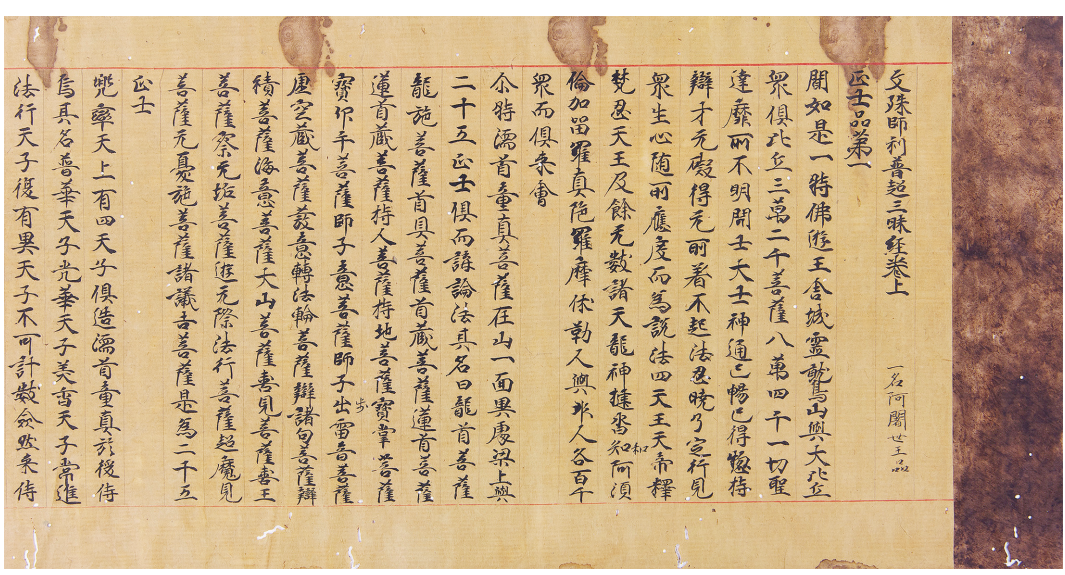 文殊師利普超三昧經卷上 一名阿闍世王品
正士品第一
聞如是一時佛遊王舍城靈鷲山與大比丘
衆俱比丘三萬二千菩薩八萬四千一切聖
達靡所不明開士大士神通已暢已得惣持
辯才无礙得无所著不起法忍曉了定行見
衆生心隨所應度而為說法四天王天帝釋
梵忍天王及餘无數諸天龍神揵沓和阿須
倫加留羅真陀羅摩休勒人與非人各百千
衆而俱來會
尒時濡首童真菩薩在山一面異處梁上與
二十五正士俱而講論法其名曰龍首菩薩
龍施菩薩首具菩薩首藏菩薩蓮首菩薩
蓮首藏菩薩持人菩薩持地菩薩寶掌菩薩
寶印手菩薩師子意菩薩師子步出雷音菩薩
虛空藏菩薩發意轉法輪菩薩辯諸句菩薩辯
積菩薩海意菩薩大山菩薩喜見菩薩喜王
菩薩察无垢菩薩遊无際法行菩薩超魔見
菩薩无憂施菩薩諸議吉菩薩是為二十五
正士
兠率天上有四天子俱造濡首童真於後侍
焉其名普華天子光華天子美香天子常進
法行天子復有異天子不可計數僉然來侍